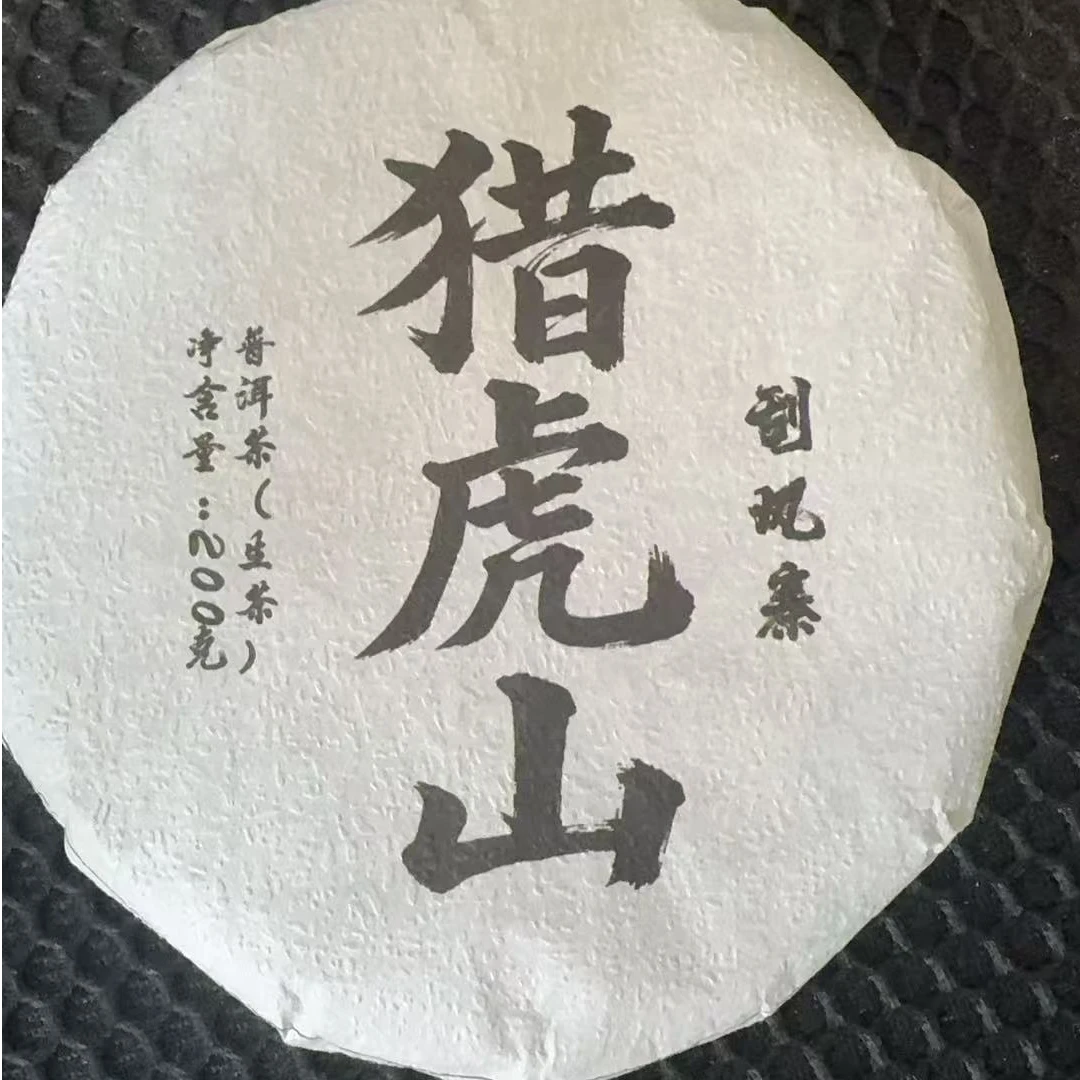 刮风寨
猎虎山
普洱茶(生茶)
净含量:200克